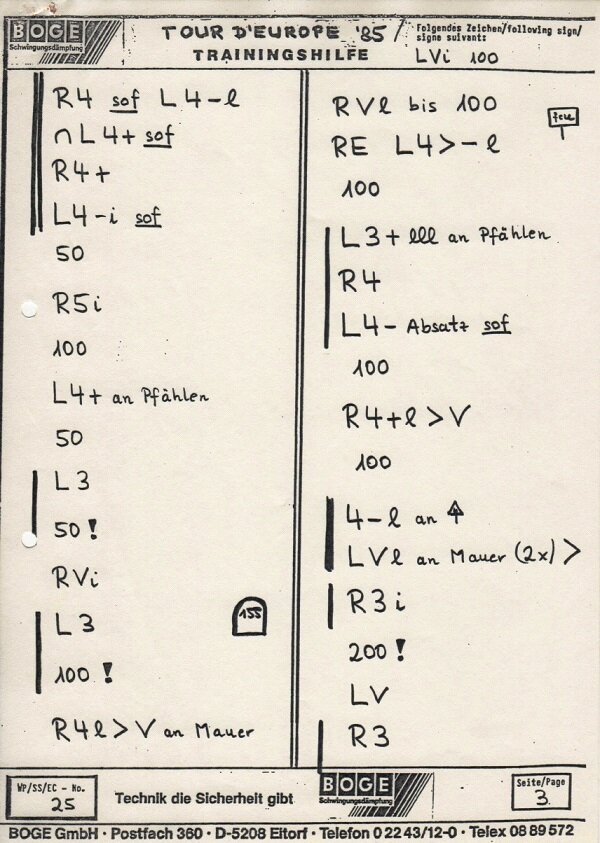 BOGE
Schwingungsdämpfung
TOUR D'EUROPE '85/
TRAININGSHILFE
Folgendes Zeichen/following sign/
signe suivant:
LVi 100
R4 sof L4-l
∩L4+ sof
R4+
L4-i sof
50
R5i
100
L4+ an Pfählen
50
L3
50!
RVi
L3
155
100!
R4l>V an Mauer
RVl bis 100
RE L4>-l
100
L3+ lll an Pfählen
R4
L4- Absatz sof
100
R4+l>V
100
4-l an ↑
LVl an Mauer (2x) >
R3i
200!
LV
R3
WP/SS/EC - No.
25
Technik die Sicherheit gibt
BOGE
Schwingungsdämpfung
Seite/Page
3
BOGE GmbH · Postfach 360 · D-5208 Eitorf · Telefon 0 22 43/12-0 · Telex 08 89 572